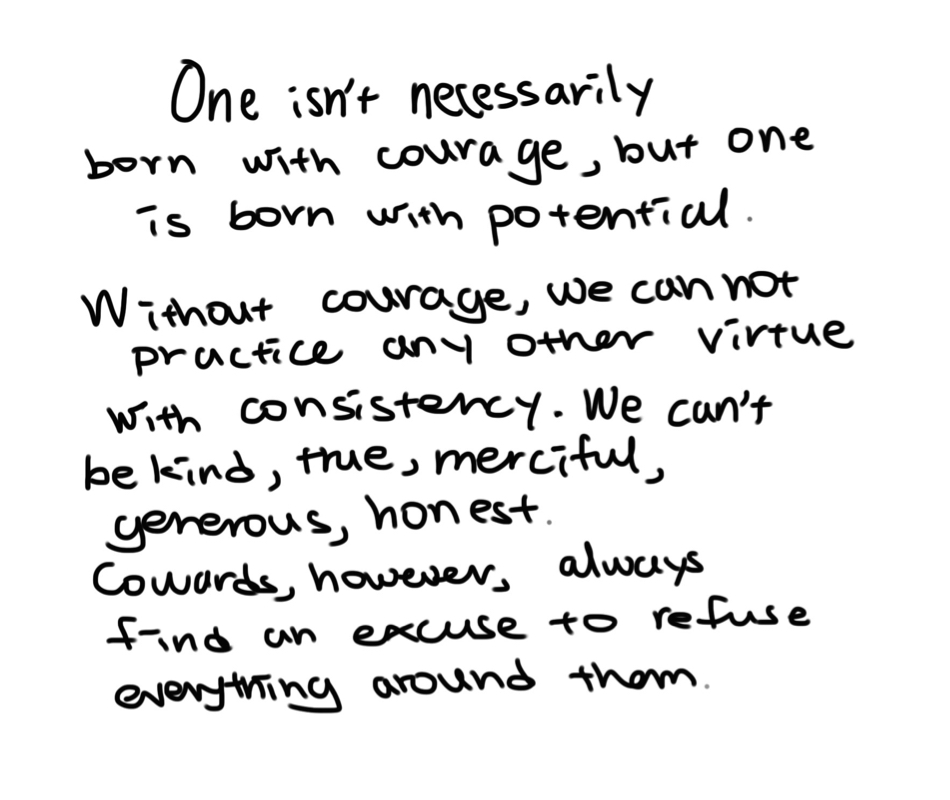 One isn't necessarily
born with courage, but one
is born with potential.
Without courage, we can not
practice any other virtue
with consistency. We can't
be kind, true, merciful,
generous, honest.
Cowards, however, always
find an excuse to refuse
everything around them.